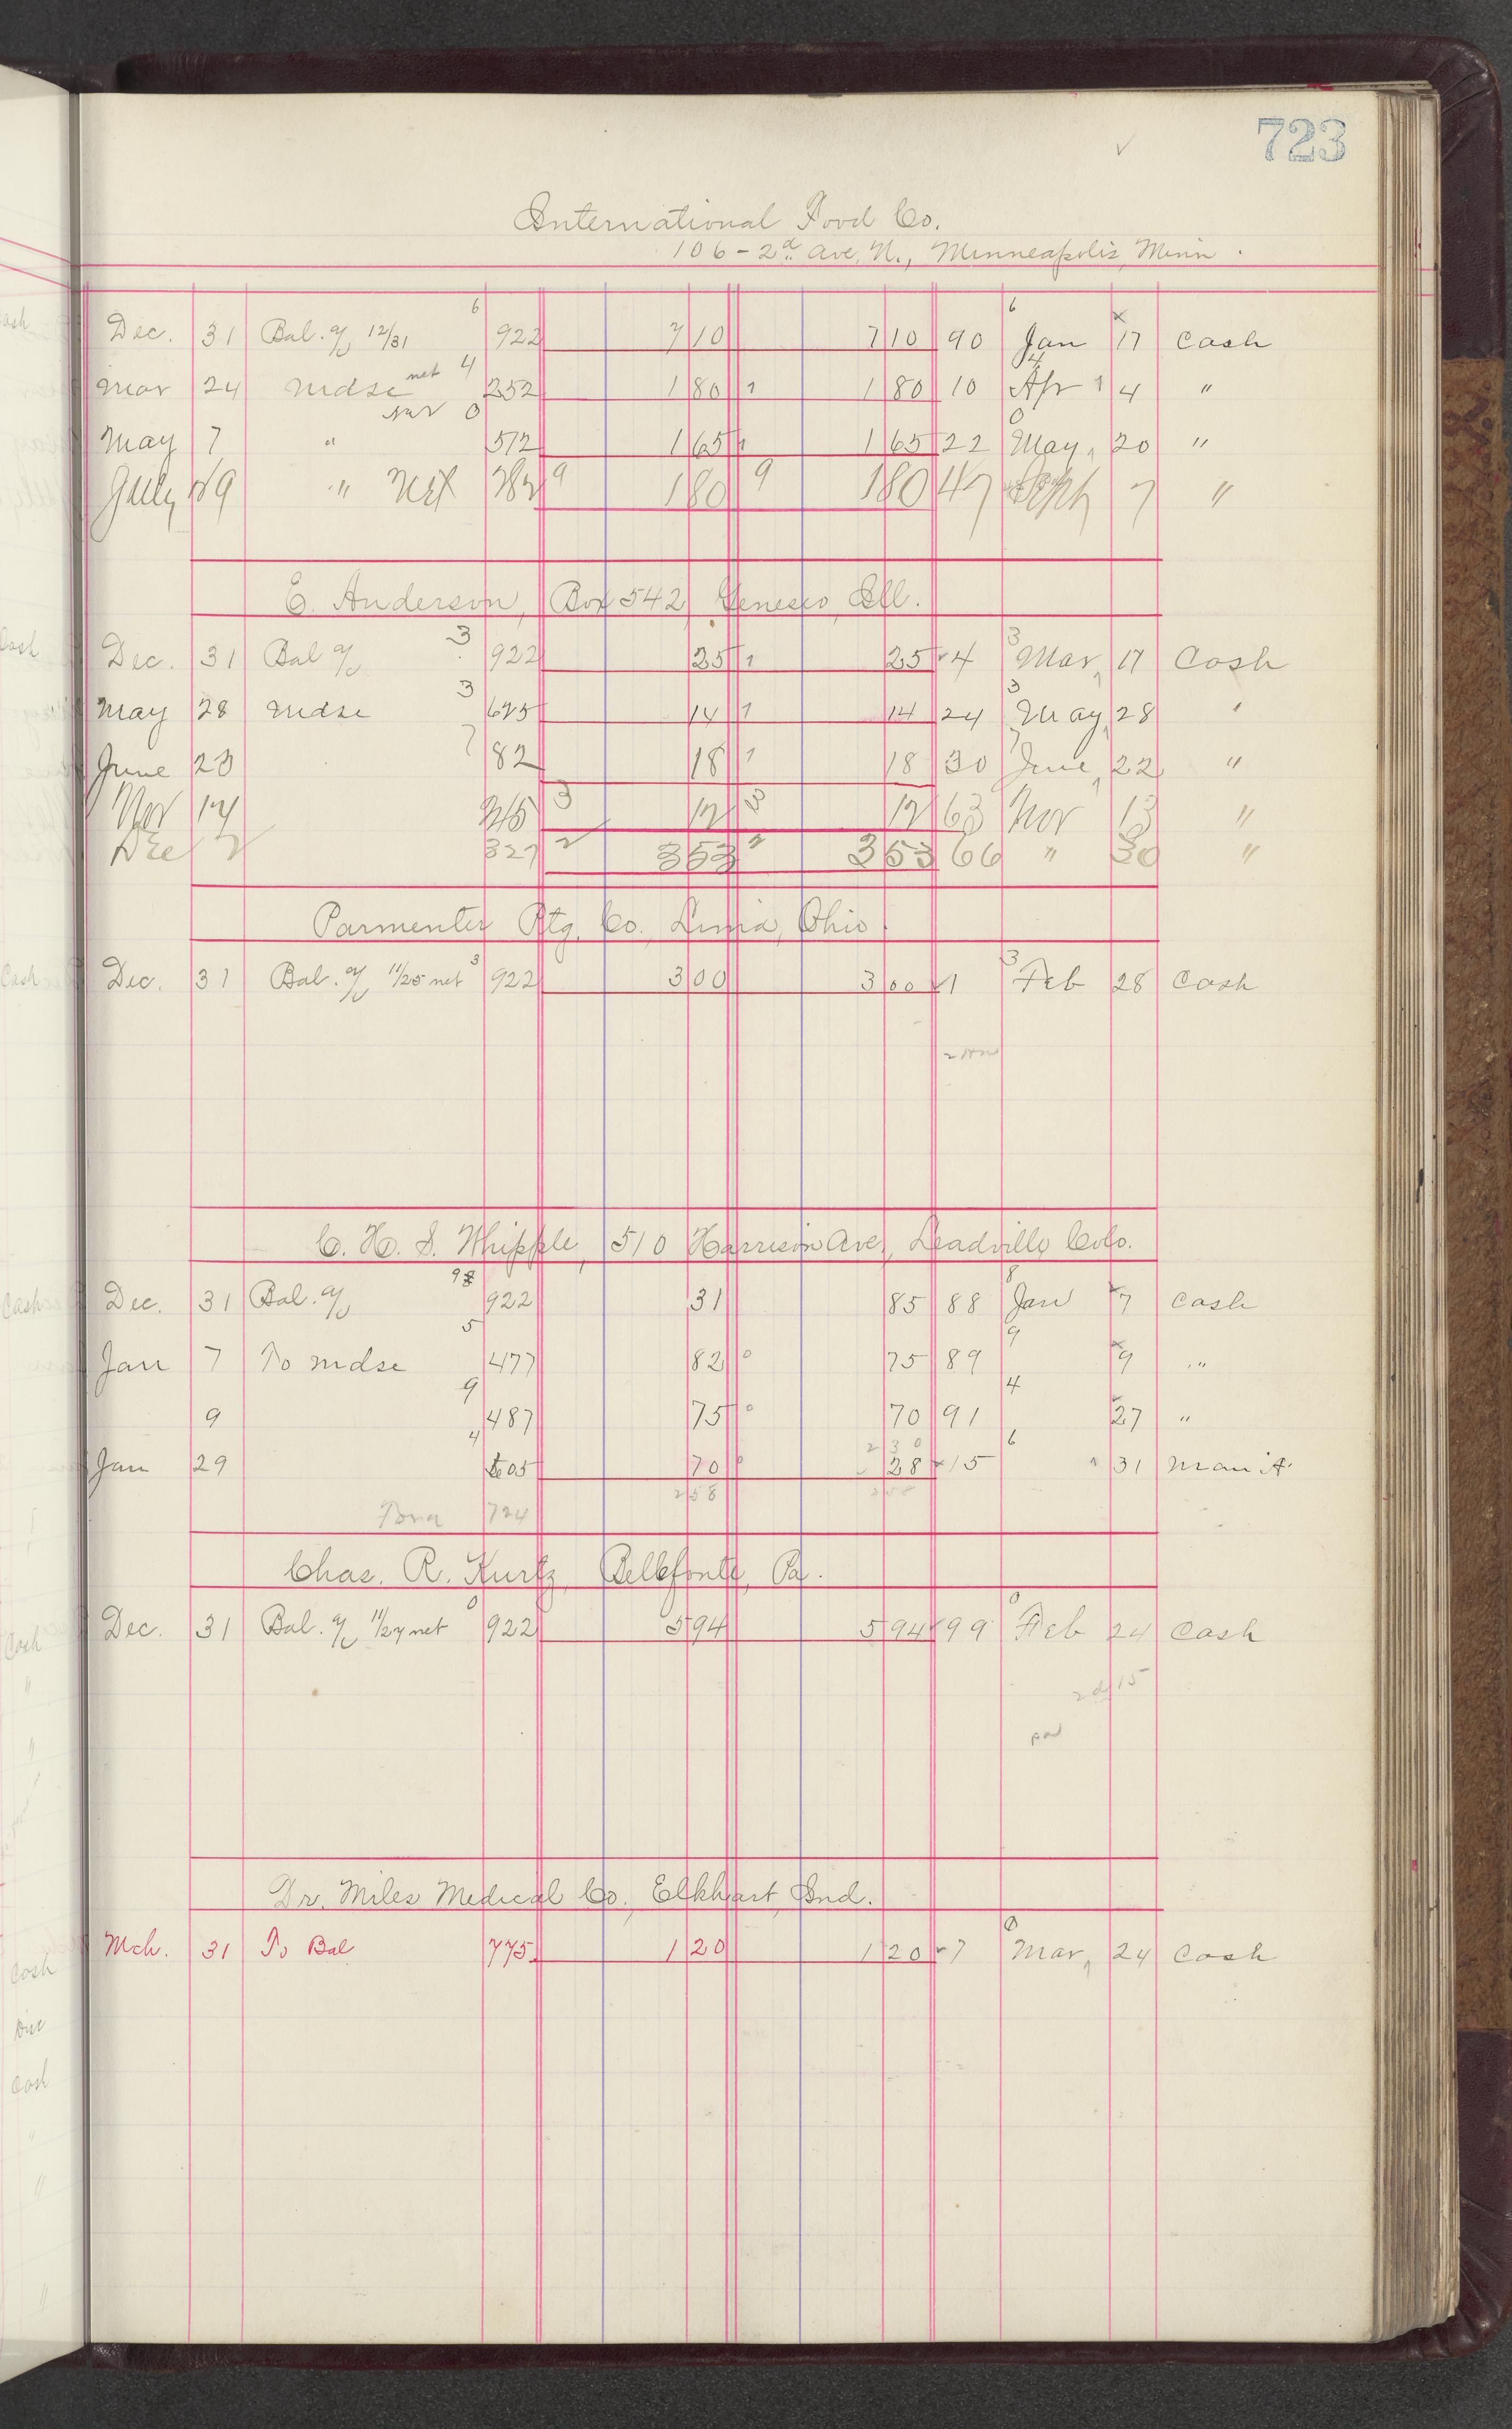 723
International Food Co.
106 - 2d Ave, N., Minneapolis, Minn.
6 6 x
Dec. 31 Bal. a/c 12/31 922 7 10 7 10 90 Jan 17 Cash
net 4 4
Mar 24 Mdse 252 1 80 1 1 80 10 Apr 1 4 "
net 0 0
May 7 " 572 1 65 1 1 65 22 May, 20 "
July 19 " Net 9 180 9 180 47 Sept 7 "
E. Anderson, Box 542 Geneseo, Ill.
3 3
Dec. 31 Bal a/c 922 25 1 25 4 Mar, 17 Cash
3 3
May 28 Mdse 625 14 1 14 24 May, 28 "
7 7
June 23 82 18 1 18 30 June, 22 "
Nov 14 3 12 3 12 63 Nov 13 "
Dec 2 327 2 353 2 353 66 " 30 "
Parmenter Ptg. Co. Lima, Ohio.
3 3
Dec. 31 Bal. a/c 11/25 net 922 3 00 3 00 1 Feb 28 Cash
C. H. S. Whipple, 510 Harrison Ave, Leadville Colo.
98 8
Dec. 31 Bal. a/c 922 31 85 88 Jan 7 Cash
5 9
Jan 7 To Mdse 477 82 0 75 89 9 "
9 4
9 487 75 0 70 91 27 "
4 2 3 0 6
Jan 29 505 70 0 28 15 " 31 Man it
258 258
724
Chas. R. Kurtz, Bellefonte, Pa.
0 0
Dec. 31 Bal. a/c 11/27 net 922 5 94 5 94 99 Feb 24 Cash
pd
Dr. Miles Medical Co., Elkhart, Ind.
0
Mch. 31 To Bal 775 1 20 1 20 7 Mar, 24 Cash